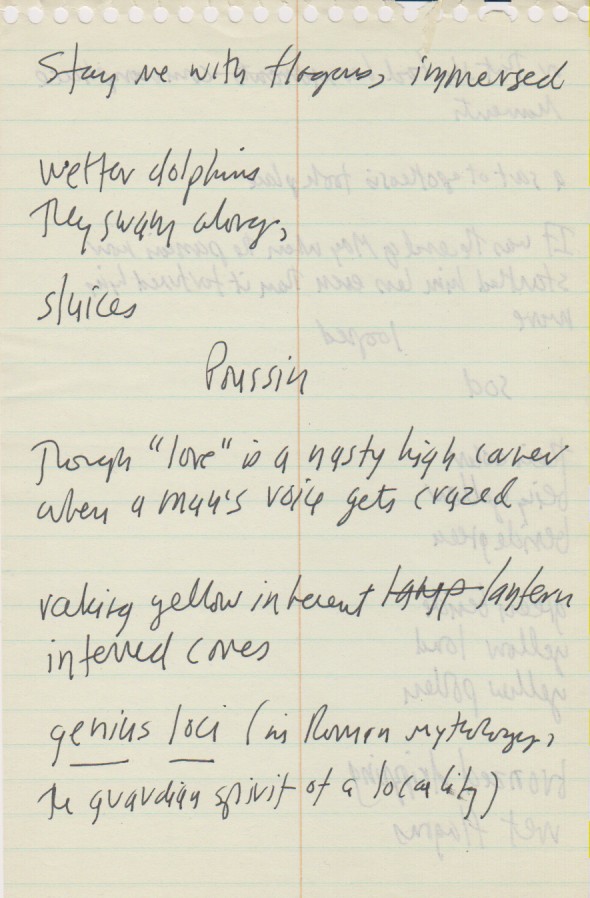 Stay me with flagons, immersed
wetter dolphins
They swam along,
sluices
Poussin
Though "love" is a nasty high
when a man's voice gets crazed
raking yellow inherent lamp lantern
interred cones
genius loci (in Roman mythology,
the guardian spirit of a locality)